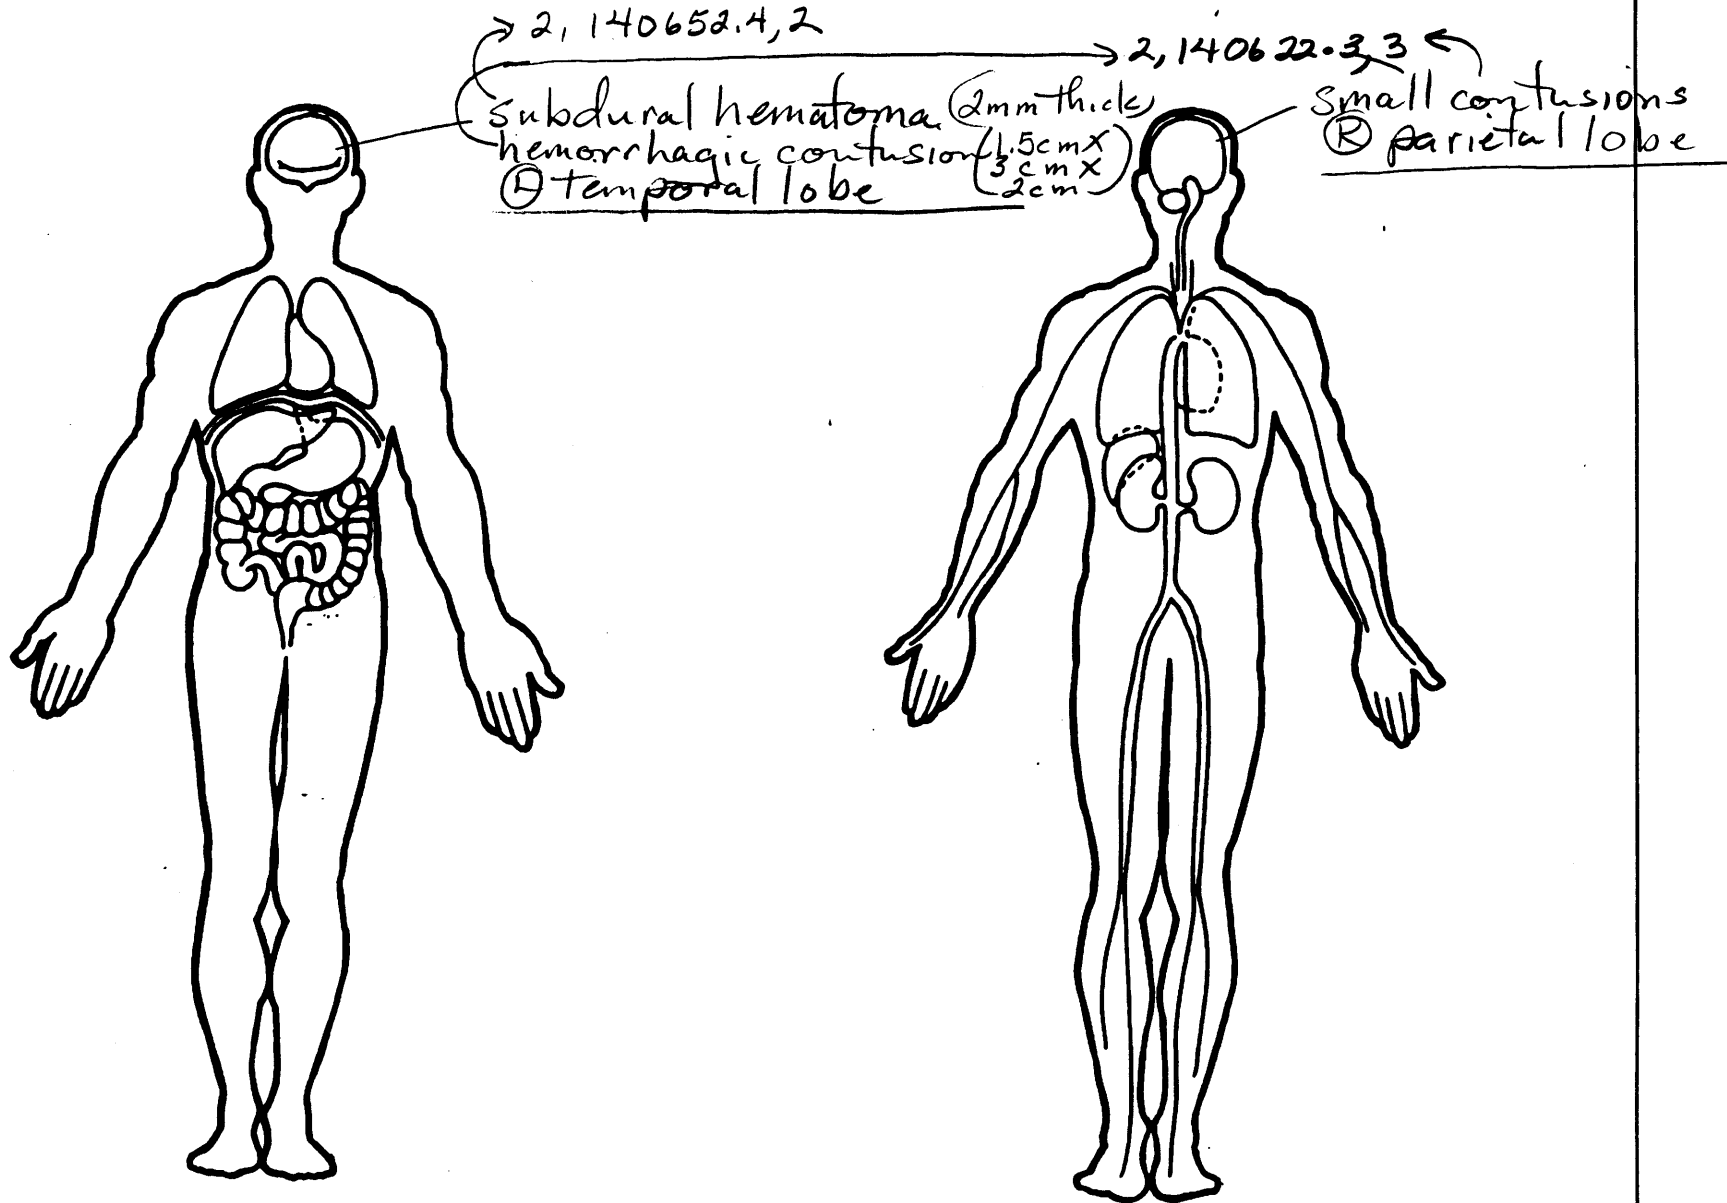 2, 140652.4, 2
2, 140622.3, 3
subdural hematoma (2mm thick)
hemorrhagic contusion (1.5cm X
3 cm X
2cm)
Ⓛ temporal lobe
small contusions
Ⓡ parietal lobe